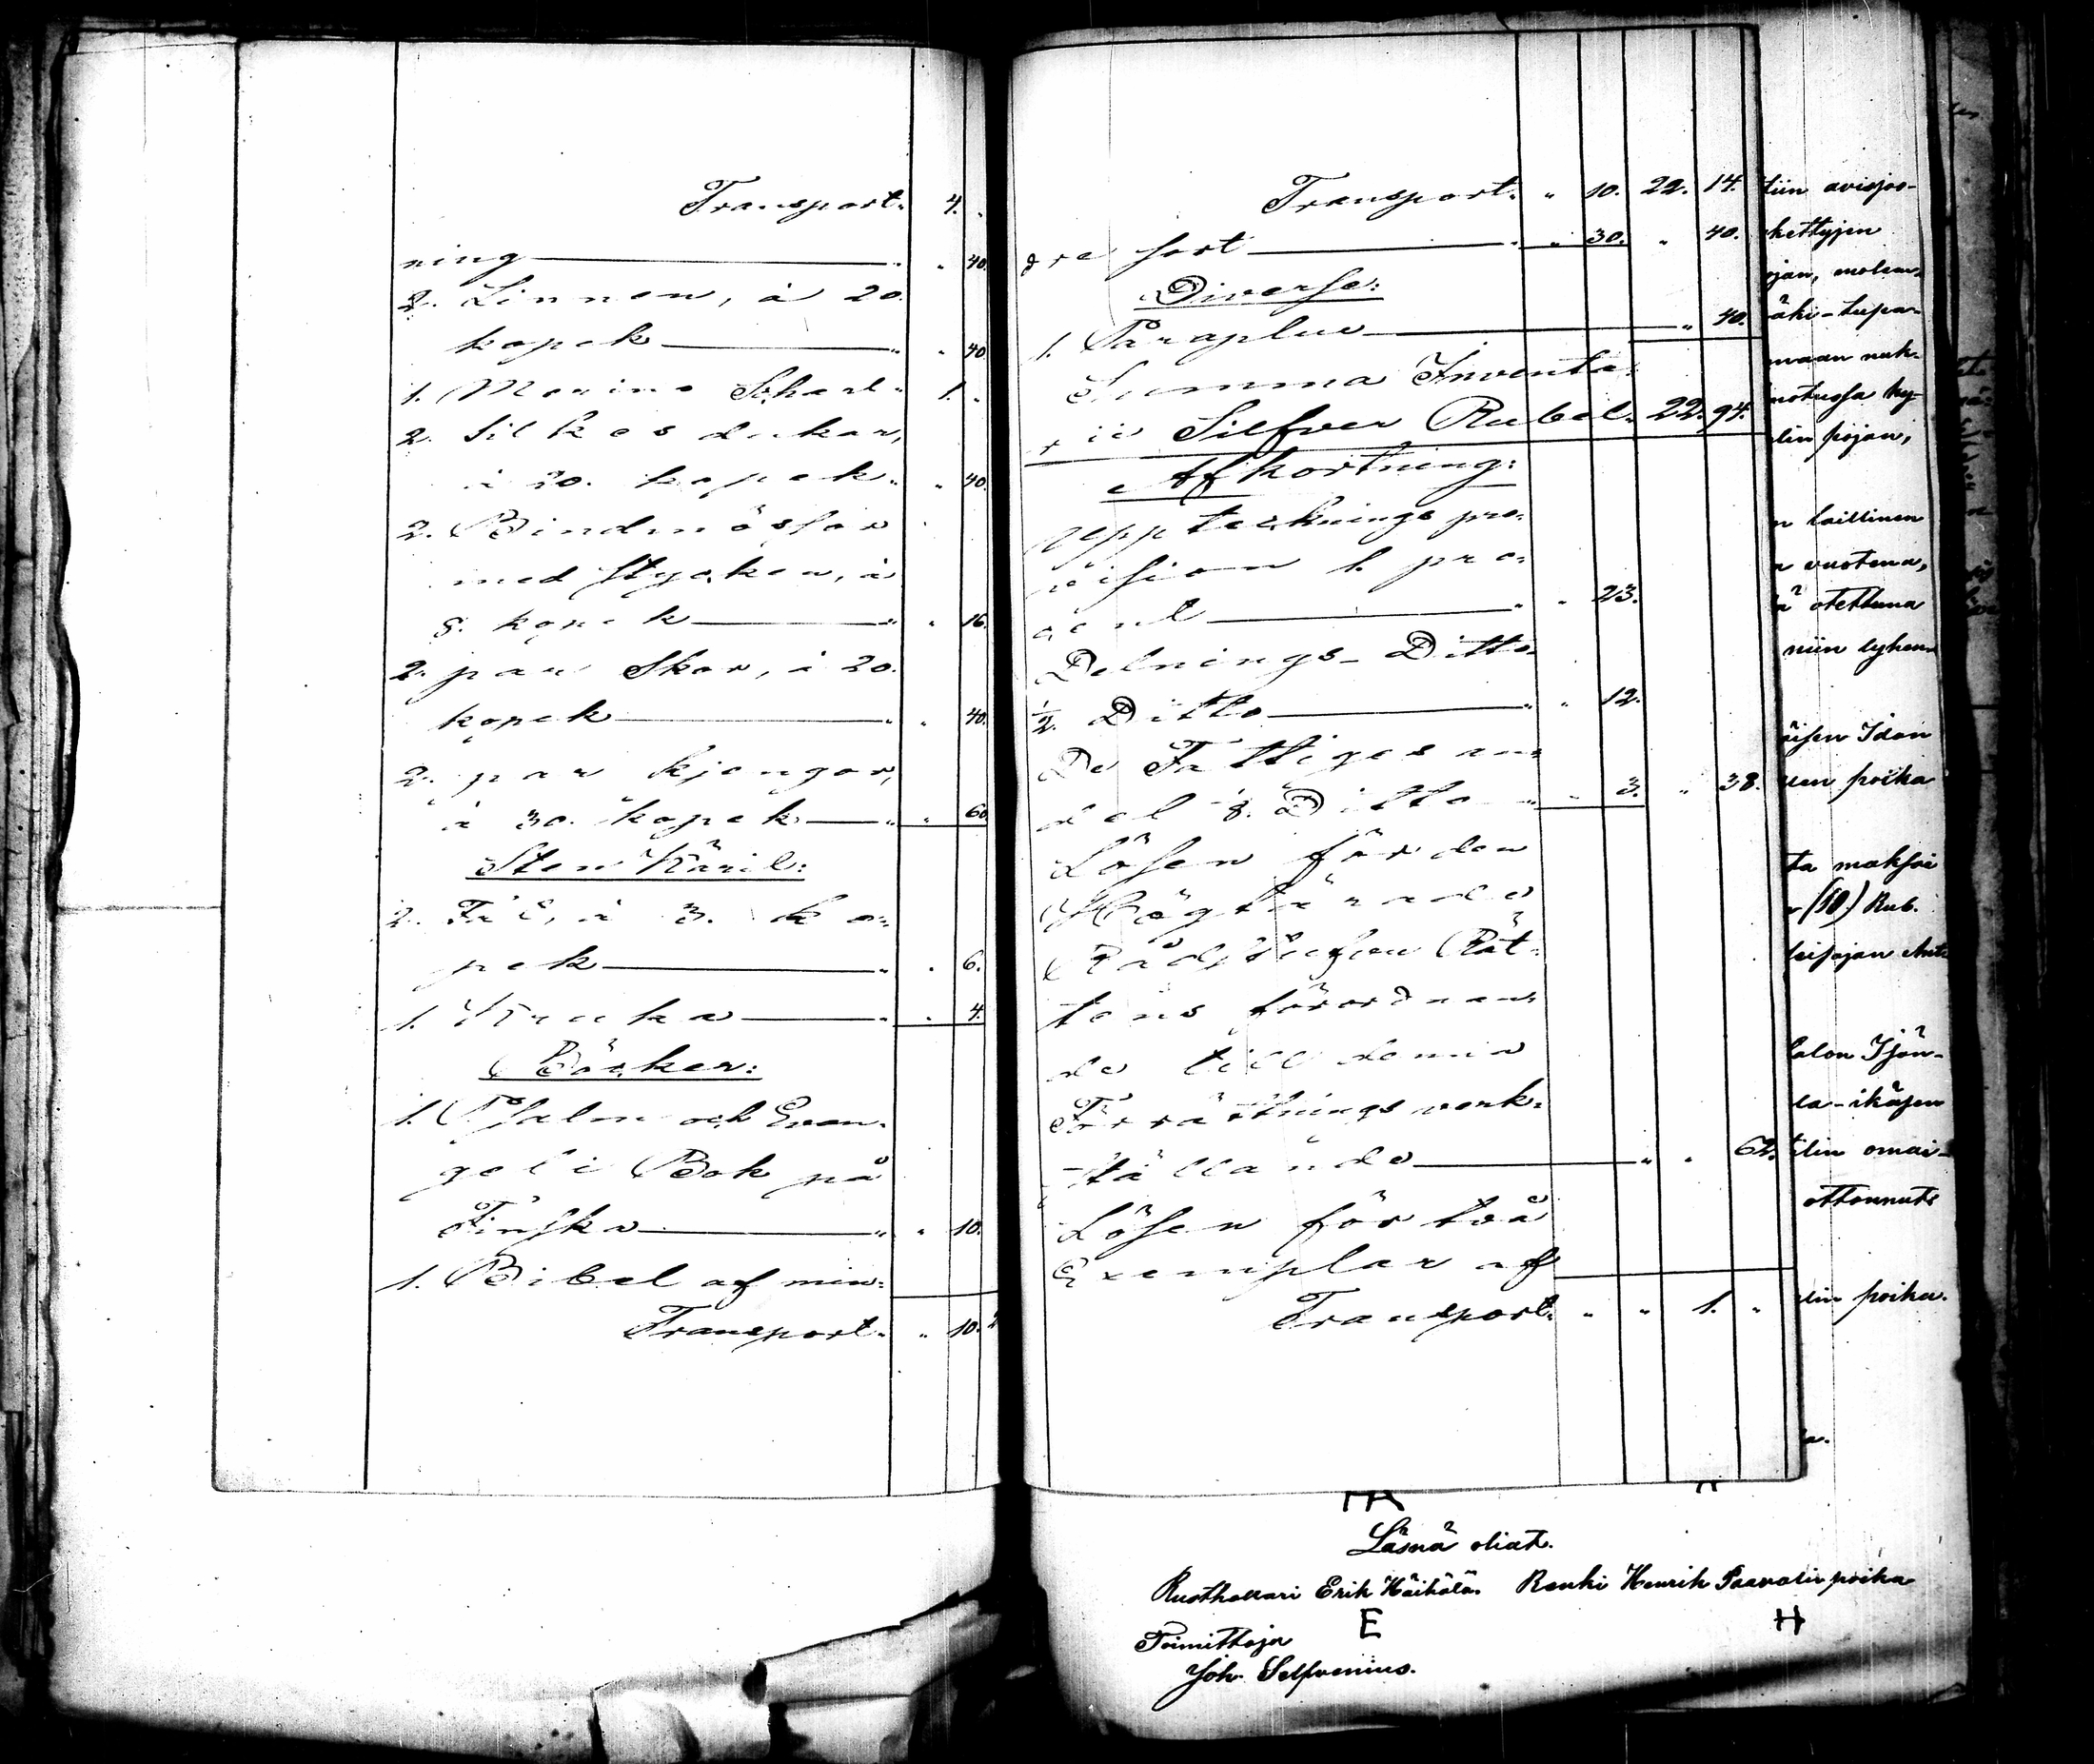 Transport. 4. "
ning " " 40.
2. Linnen, à 20.
kopek " " 40.
1. Merino Schal " 1. "
2. Silkes dukar,
à 20. kopek " " 40.
2. Bindmössor
med stycken, à
8. kopek " " 16.
2. par Skor, à 20.
kopek " " 40.
2. par kjengor,
à 30. kopek " " 60.
Sten Käril:
2. Fat, à 3. ko-
pek " " 6.
1. Kruka " " 4.
Böcker:
1. Psalm och Evan-
geli Bok på
Finska " " 10.
1. Bibel af min-
Transport. " 10.
Transport. " 10. 22. 14.
dre sort " " 30. " 40.
Diverse:
1. Paraplue " 40.
Summa Inventa-
rii Silfver Rubel. 22. 94.
Afkortning:
Upptecknings pro-
vision 1. pro-
cent " " 23.
Delnings Ditto
1/2. Ditto " " 12.
De Fattigas an-
del 1/8. Ditto " " 3. " 38.
Lösen för den
Höglärade
Rådstufvu Rät-
tens förordnan-
de till denna
Förrättnings verk-
ställande " " 62.
Lösen för två
Exemplar af
Transport. " " 1. "
tiin
kettyjen
pojan,
maan
lin pojan,
n laillinen
n vuotena,
ä otettuna
niin lyhen
uen poika
ta maksoi
(10) Rub.
lin omai-
ottanut
lin poika.
Läsnä oliat.
Rusthollari Erik Häikälä. Renki Henrik Paavalin poika
E H
Toimittaja
Joh. Selfvenius.